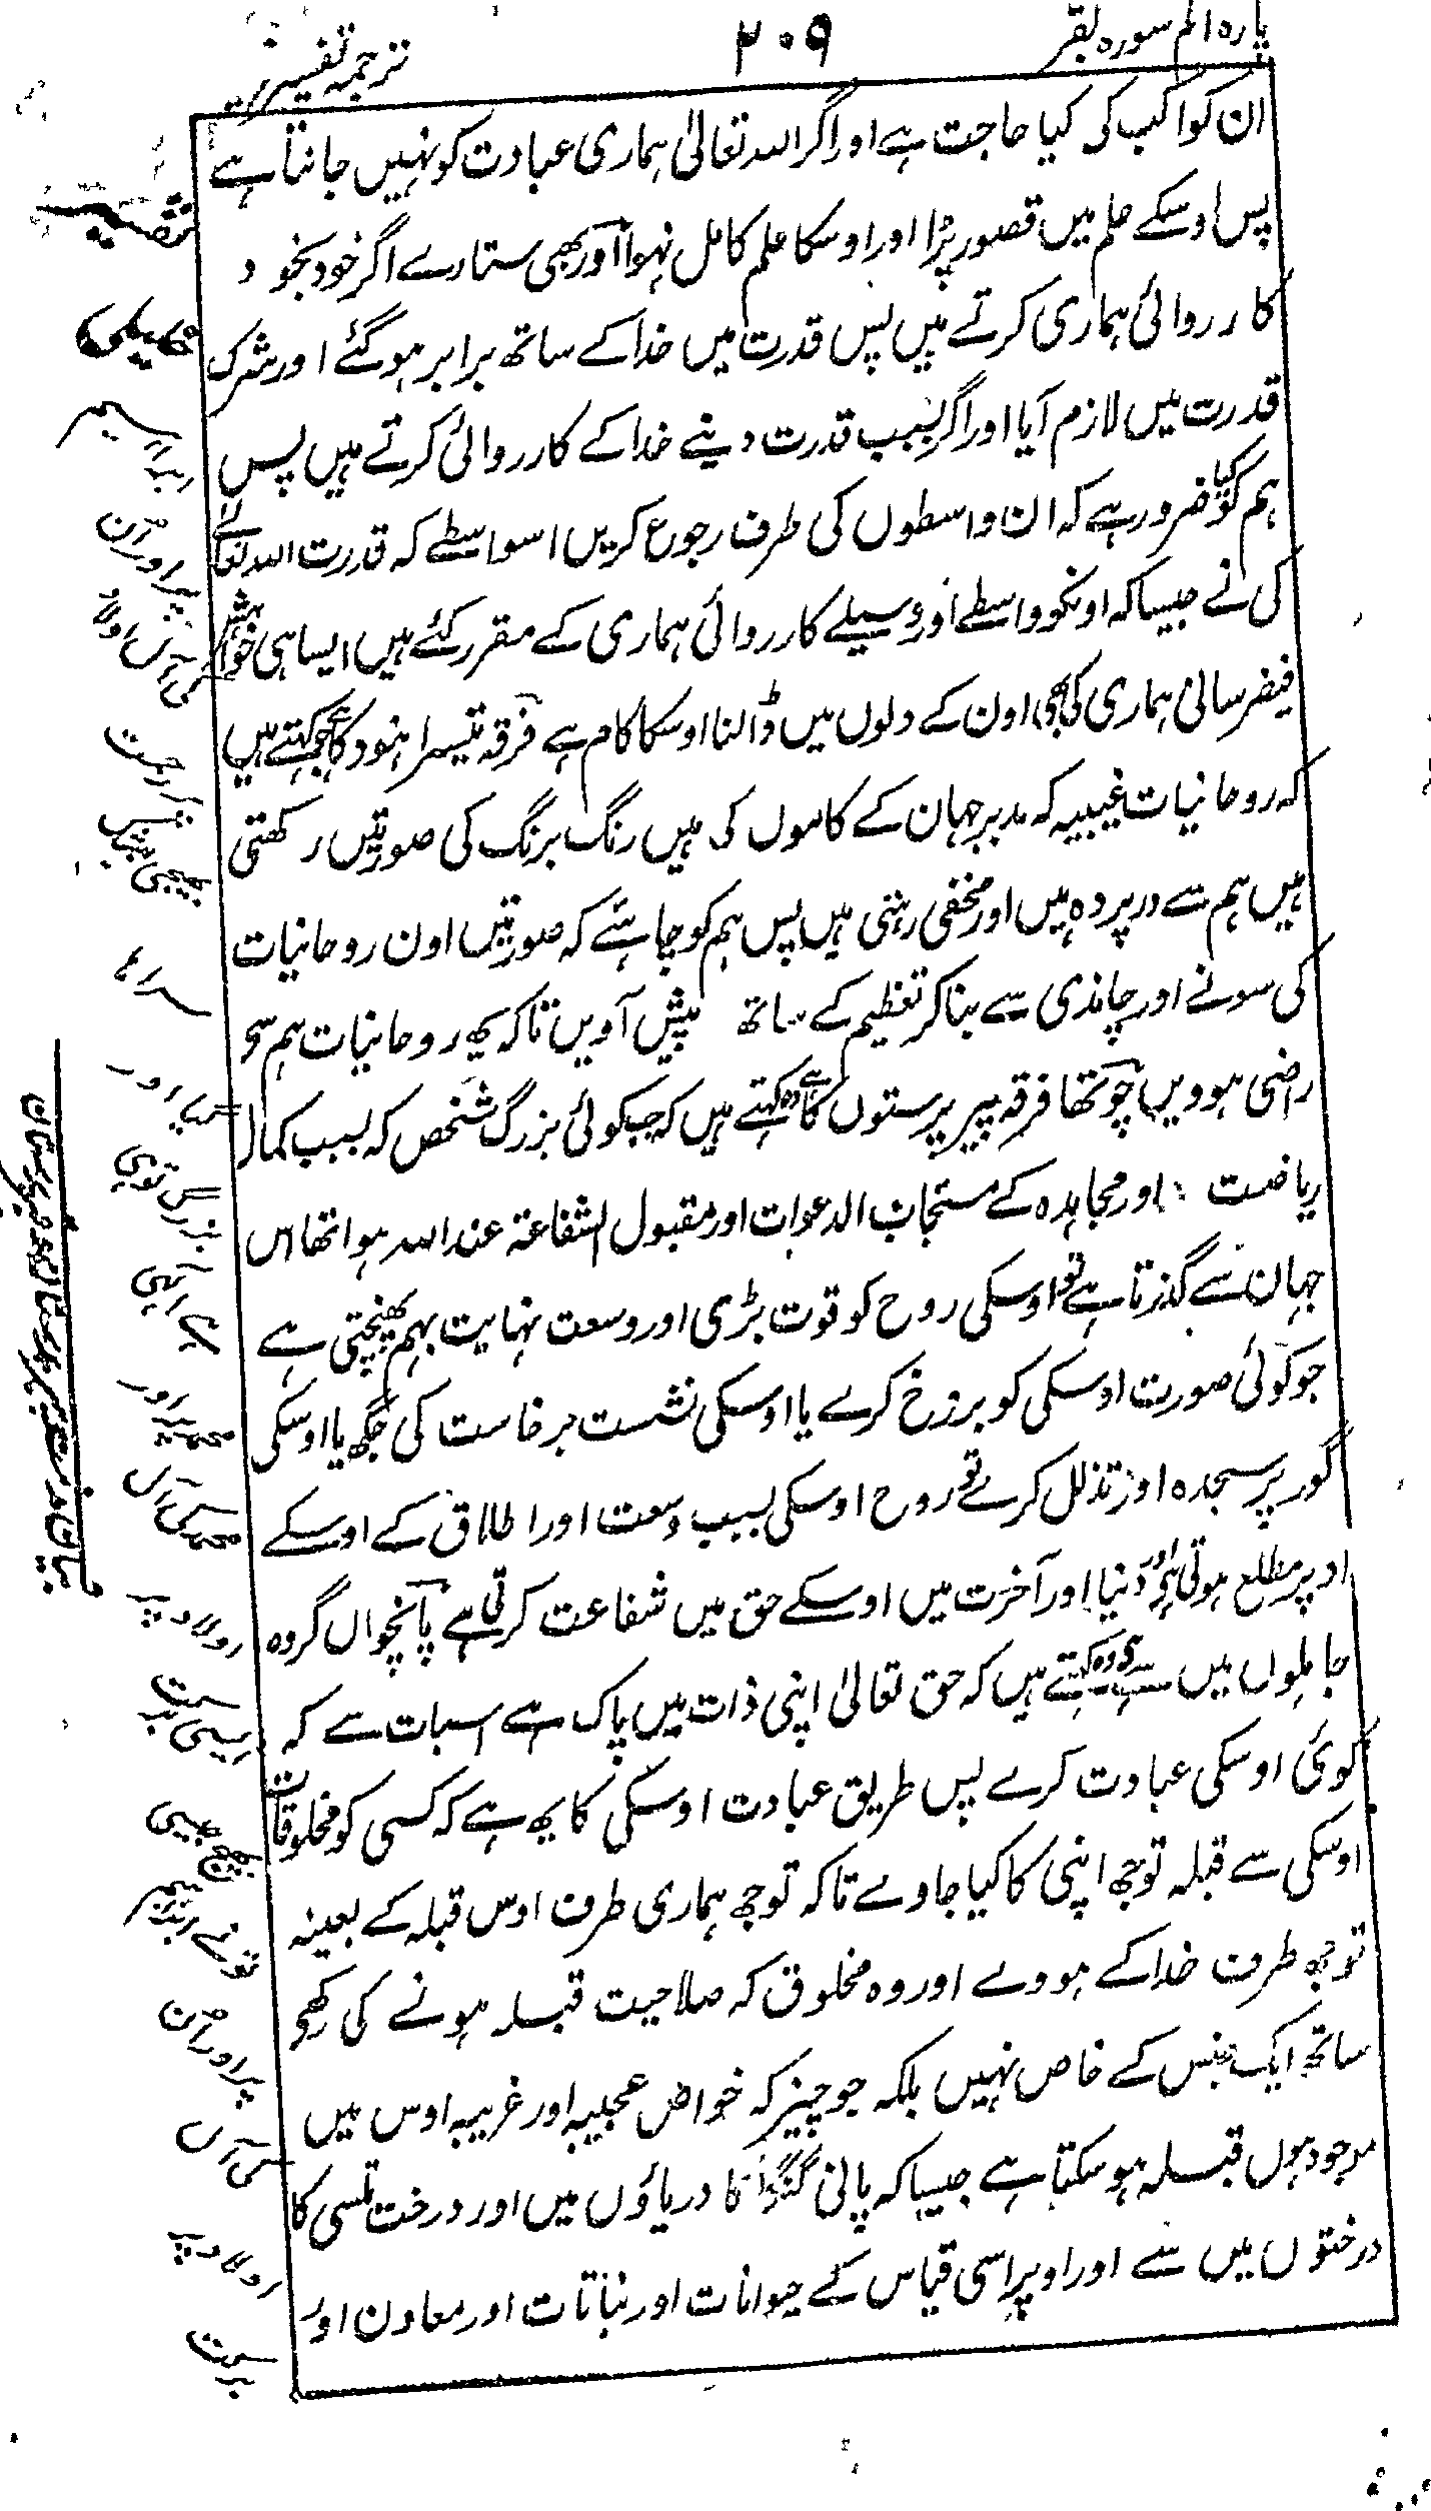 پاره الم سوره بقر
۲۰۹
ترجمہ تفسیر
ان کواکب کی کیا حاجت ہے اور اگر اللہ تعالیٰ ہماری عبادت کو نہیں جانتا ہے
پس اوسکے علم میں قصور پڑا اور اوسکا علم کامل نہوا اور بھی ستارے اگر خود بخود
کارروائی ہماری کرتے ہیں پس قدرت میں خدا کے ساتھ برابر ہو گئے اور شرک
قدرت میں لازم آیا اور اگر بسبب قدرت دینے خدا کے کارروائی کرتے ہیں پس
ہم کو کیا ضرور ہے کہ ان واسطوں کی طرف رجوع کریں اسواسطے کہ قدرت اللہ تعالےٰ
کی نے جیسا کہ اونکو واسطے اور وسیلے کارروائی ہماری کے مقرر کئے ہیں ایسا ہی خواہش
فیضرسانی ہماری کی بھی اون کے دلوں میں ڈالنا اوسکا کام ہے فرقہ تیسرا ہنود کا ہے جو کہتے ہیں
کہ روحانیات غیبیہ کہ مدبر جہان کے کاموں کی ہیں رنگ برنگ کی صورتیں رکھتی
ہیں ہم سے درپردہ ہیں اور مخفی رہتی ہیں پس ہم کو چاہئے کہ صورتیں اون روحانیات
کی سونے اور چاندی سے بنا کر تعظیم کے ساتھ پیش آویں تاکہ یہ روحانیات ہم سے
راضی ہوویں چوتھا فرقہ پیر پرستوں کا ہے وہ کہتے ہیں کہ جب کوئی بزرگ شخص کہ بسبب کمال
ریاضت اور مجاہدہ کے مستجاب الدعوات اور مقبول الشفاعۃ عند اللہ ہوا تھا اس
جہان سے گذرتا ہے تو اوسکی روح کو قوت بڑی اور وسعت نہایت بہم پہنچتی ہے
جو کوئی صورت اوسکی کو برزخ کرے یا اوسکی نشست برخاست کی جگہ یا اوسکی
گور پر سجدہ اور تذلل کرے تو روح اوسکی بسبب وسعت اور اطلاق کے اوسکے
اوپر مطلع ہوتی ہے اور دنیا اور آخرت میں اوسکے حق میں شفاعت کرتی ہے پانچواں گروہ
جاہلوں میں سے ہے وہ کہتے ہیں کہ حق تعالیٰ اپنی ذات میں پاک ہے اسبات سے کہ
کوئی اوسکی عبادت کرے پس طریق عبادت اوسکی کا یہ ہے کہ کسی کو مخلوقات
اوسکی سے قبلہ توجھ اپنی کا کیا جاوے تاکہ توجھ ہماری طرف اوس قبلہ کے بعینہ
توجھ طرف خدا کے ہووے اور وہ مخلوق کہ صلاحیت قبلہ ہونے کی رکھے
ساتھ ایک جنس کے خاص نہیں بلکہ جو چیز کہ خواص عجیبہ اور غریبہ اوس میں
موجود ہوں قبلہ ہو سکتا ہے جیسا کہ پانی گنگا کا دریاؤں میں اور درخت تلسی کا
درختوں میں سے اور اوپر اسی قیاس کے حیوانات اور نباتات اور معادن اور